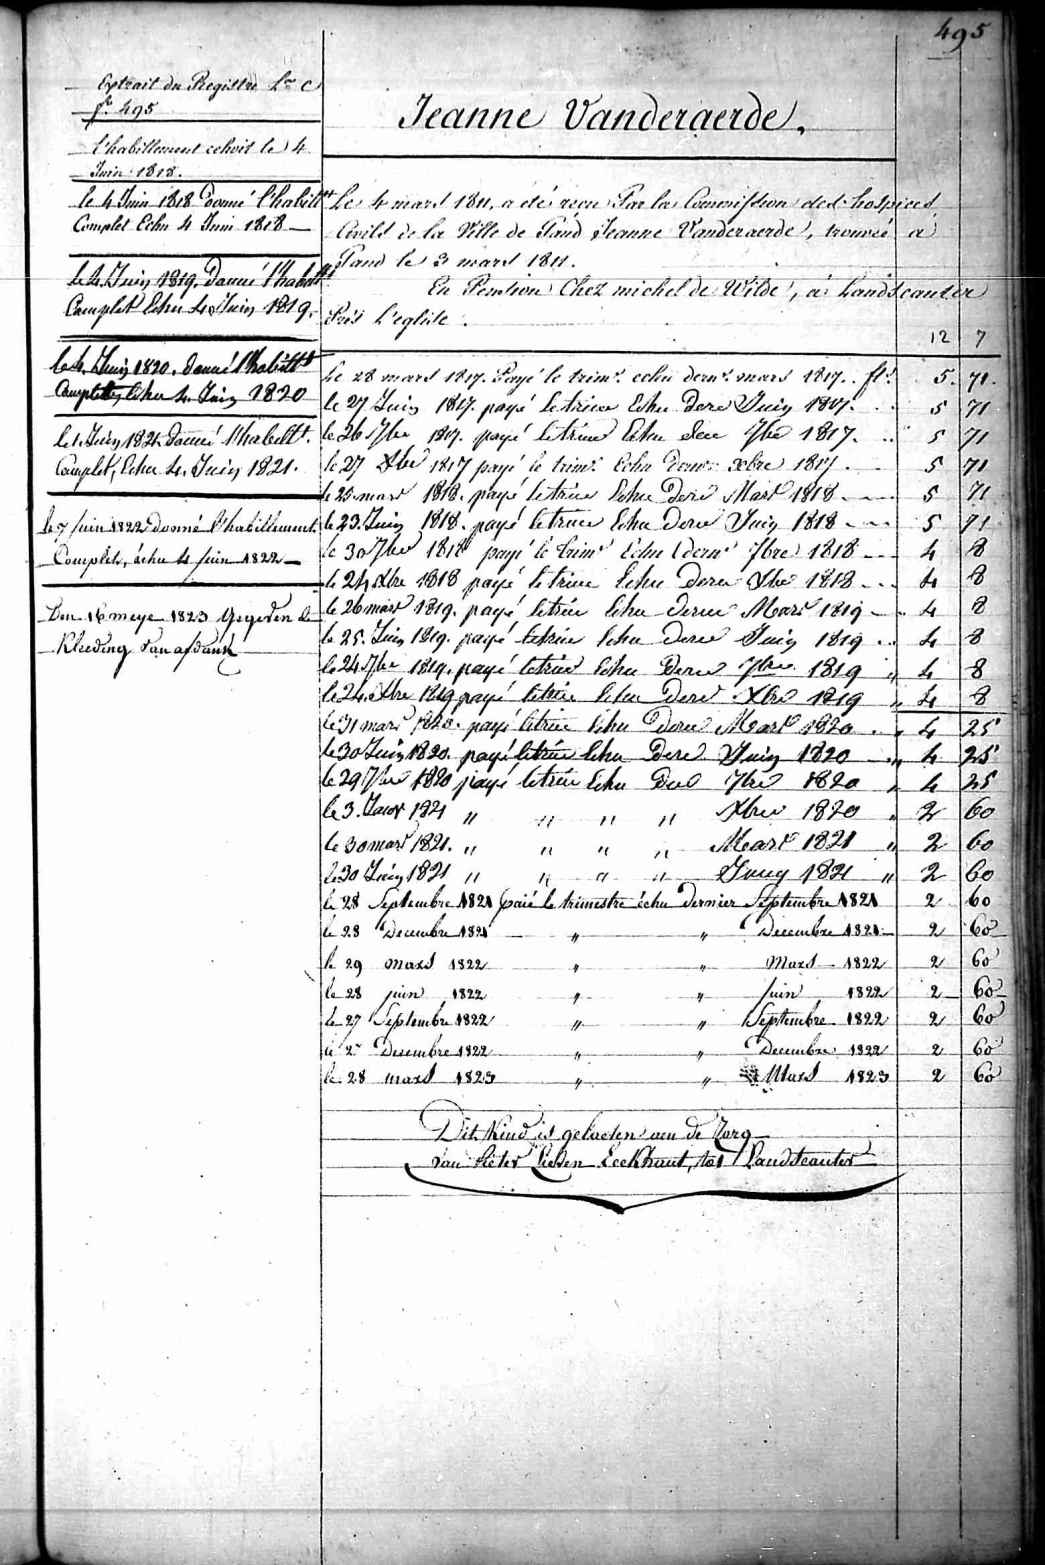 495
Extrait du Registre Lre C
fo. 495
l'habillement echoit le 4
Juin 1818.
le 4 Juin 1818 donné l'habillt
Complet Echu 4 Juin 1818
le 4 Juin 1819. Donné l'habillt
Complet Echu 4 Juin 1819.
le 4 Juin 1820. donné l'habillt
Complett, Echu 4. Juin 1820
le 1 Juin 1821 donné l'habillt.
Complet, Echu 4. Juin 1821.
le 7 Juin 1822 donné l'habillement
Complet, échu 4 juin 1822
Den 16 meye 1823 gegeven de
Kleeding van afdank
Jeanne Vanderaerde.
Le 4 mars 1811, a été recu Par la Commission des hospices
Civils de la Ville de Gand Jeanne Vanderaerde, trouvée à
Gand le 3 mars 1811.
En Pension Chez michel de Wilde, à Landscauter
Près L'eglise.
12 7
Le 28 mars 1817. Payé le trimre. echu dernr. mars 1817. fls. 5. 71.
le 27 Juin 1817. payé le trim Echu Dere Juin 1817. 5 71
le 26 7bre 1817. payé le trim Echu der 7bre 1817. 5 71
le 27 Xbre 1817 payé le trimre Echu dernr. xbre 1817 5 71
le 25 mars 1818. payé le trim Echu Dere Mars 1818 5 71
le 23 Juin 1818. payé le trim Echu Dere Juin 1818 5 71
le 30 7bre 1818 payé le trimre Echu dernr 7bre 1818 4 8
le 24 Xbre 1818 payé le trim Echu Dere Xbre 1818 4 8
le 26 mars 1819. payé le trim Echu Dere Mars 1819 4 8
le 25. Juin 1819. payé le trim Echu dere Juin 1819 4 8
le 24 7bre 1819. payé le trim Echu Dere 7bre 1819 " 4 8
le 24 Xbre 1819 payé le trim Echu Dere Xbre 1819 " 4 8
le 31 mars 1820. payé le trim Echu Dere Mars 1820 " 4 25
le 30 Juin 1820. payé le trim Echu Dere Juin 1820 " 4 25
le 29 7bre 1820 payé le trim Echu Der 7bre 1820 " 4 25
le 3. Janr 1821 " " " " Xbre 1820 " 2 60
le 30 mars 1821. " " " " Mars 1821 " 2 60
le 30 Juin 1821 " " " " Juin 1821 " 2 60
le 28 Septembre 1821 paié le trimestre échu dernier Septembre 1821 2 60
le 28 Decembre 1821 " " Decembre 1821 2 60
le 29 mars 1822 " " Mars 1822 2 60
le 28 juin 1822 " " juin 1822 2 60
le 27 Septembre 1822 " " Septembre 1822 2 60
le 2 Decembre 1822 " " Decembre 1822 2 60
le 28 mars 1823 " " Mars 1823 2 60
Dit Kind is gelaeten aen de Zorg
van Pieter Liesen Eeckhaut, tot Landscauter